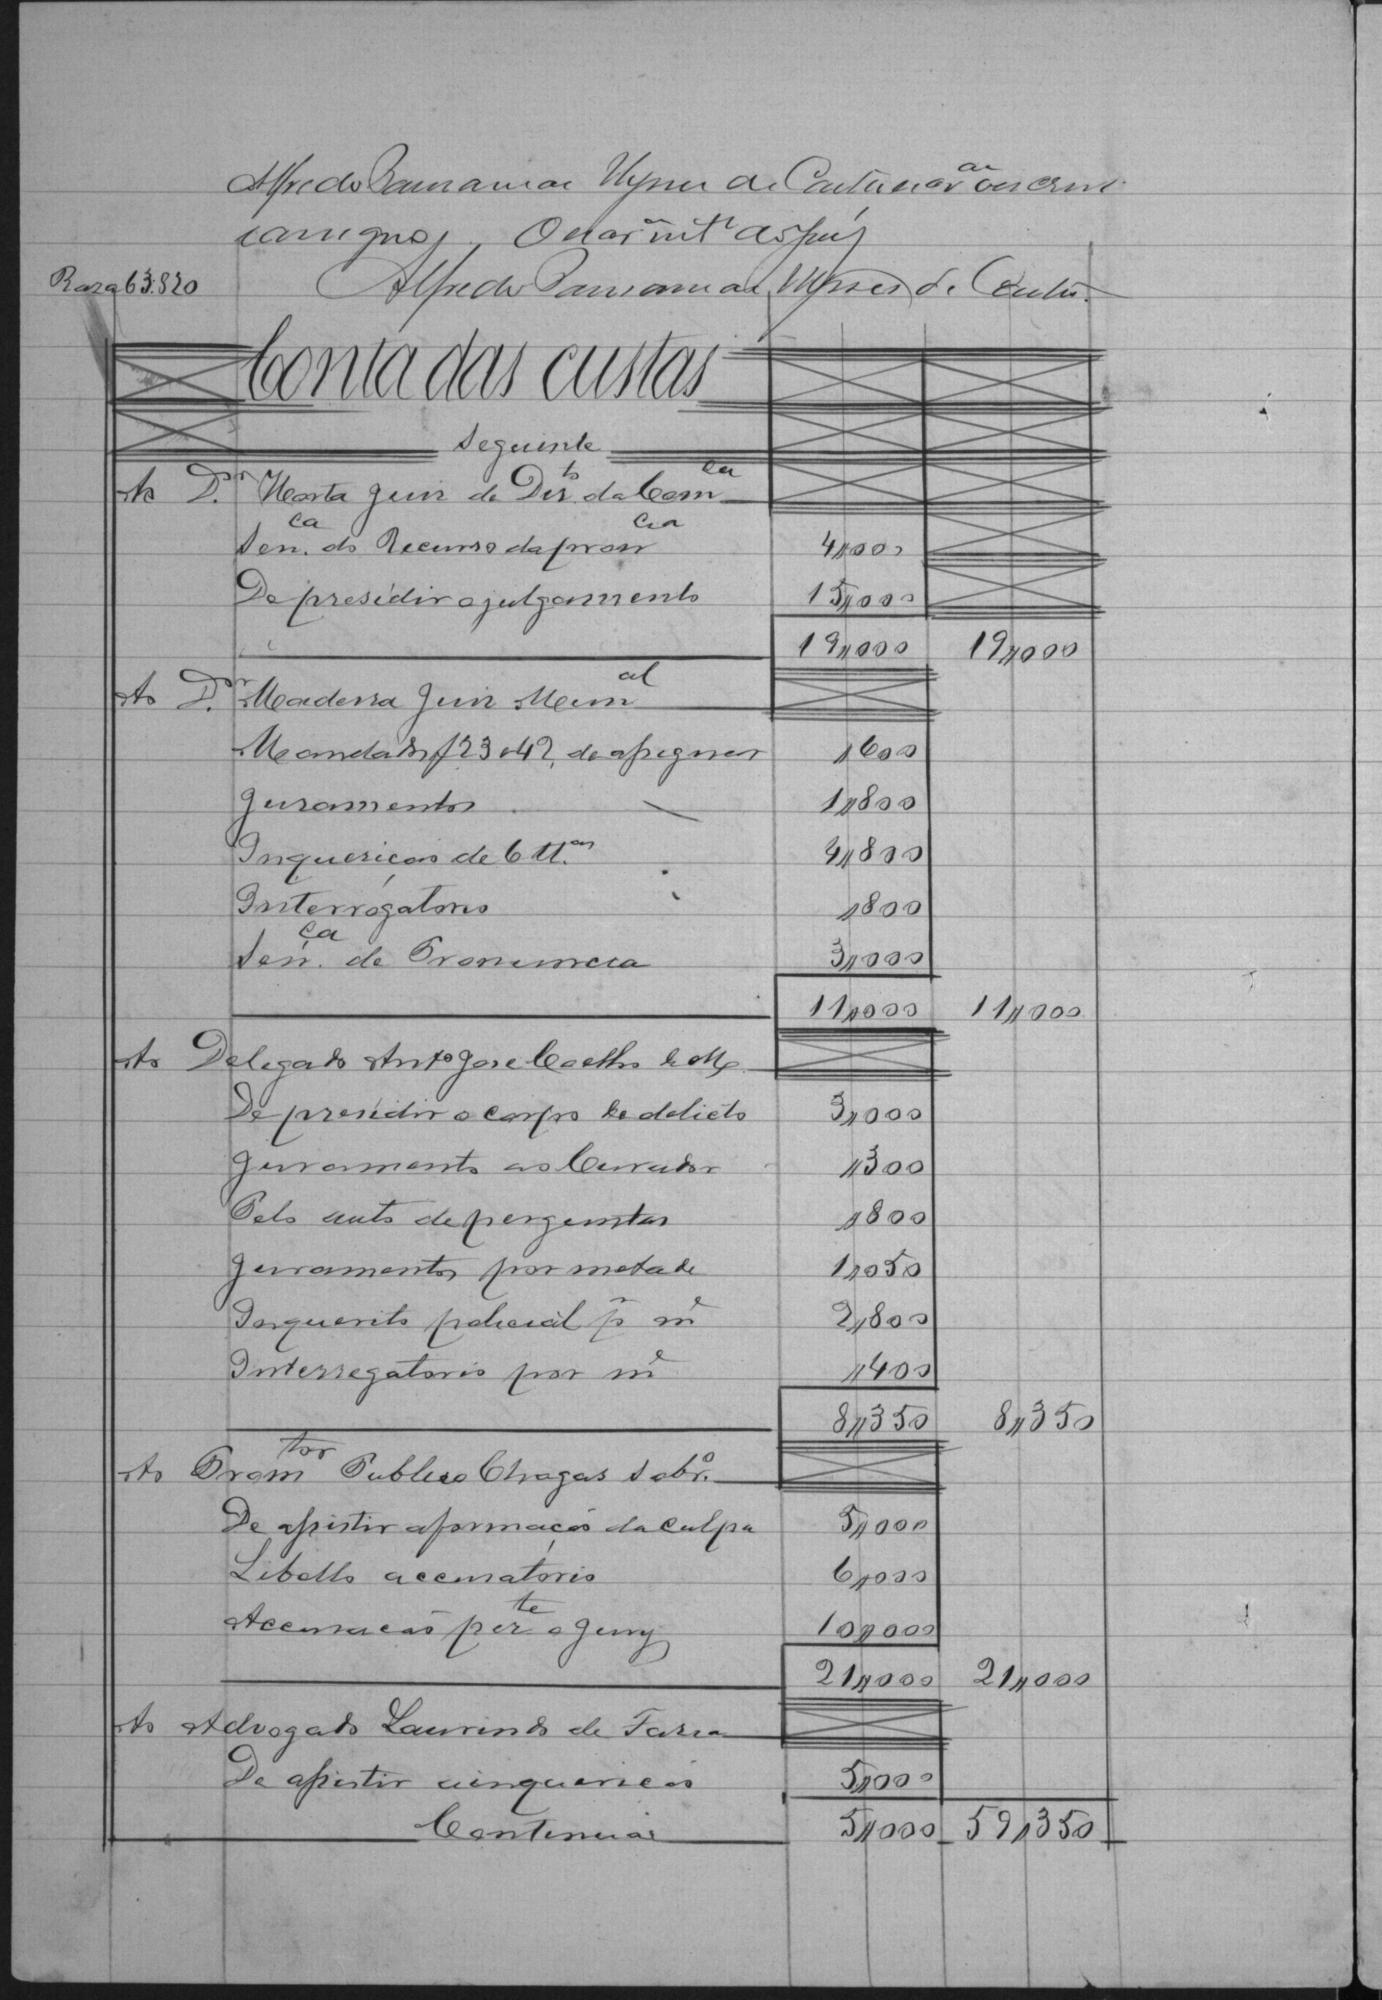 Alfredo
Alfredo
Raza 63.820
Conta das custas
Seguinte
Ao D.or Horta Juiz de Dir.to da Com.ca
Sen.ça do Recurso da pron.cia 4,,000
De presidir o julgamento 15,,000
19,,000 19,,000
Ao D.or Madeira Juiz Mun.al
Mandados f 23 e 42, de assignar ,,600
Juramentos 1,,800
Inquerição de 6 tt.as 4,,800
Interrogatorio ,,800
Sen.ça de Pronuncia 3,,000
11,,000 11,,000
Ao Delegado Anto José Coelho de M
De presidir o corpo de delicto 3,,000
Juramento ao Curador ,,300
Pelo auto de perguntas ,,800
Juramentos por metade 1,,050
Inquerito policial pr me 2,,800
Interregatorio por me ,,400
8,,350 8,,350
Ao Promtor Publico Chagas Sobr.o
De assistir a formação da culpa 5,,000
Libello accusatorio 6,,000
Accusação per.te o Jury 10,,000
21,,000 21,,000
Ao Advogado Laurindo de Faria
De assistir a inquerição 5,,000
Continúa 5,,000 59,,350